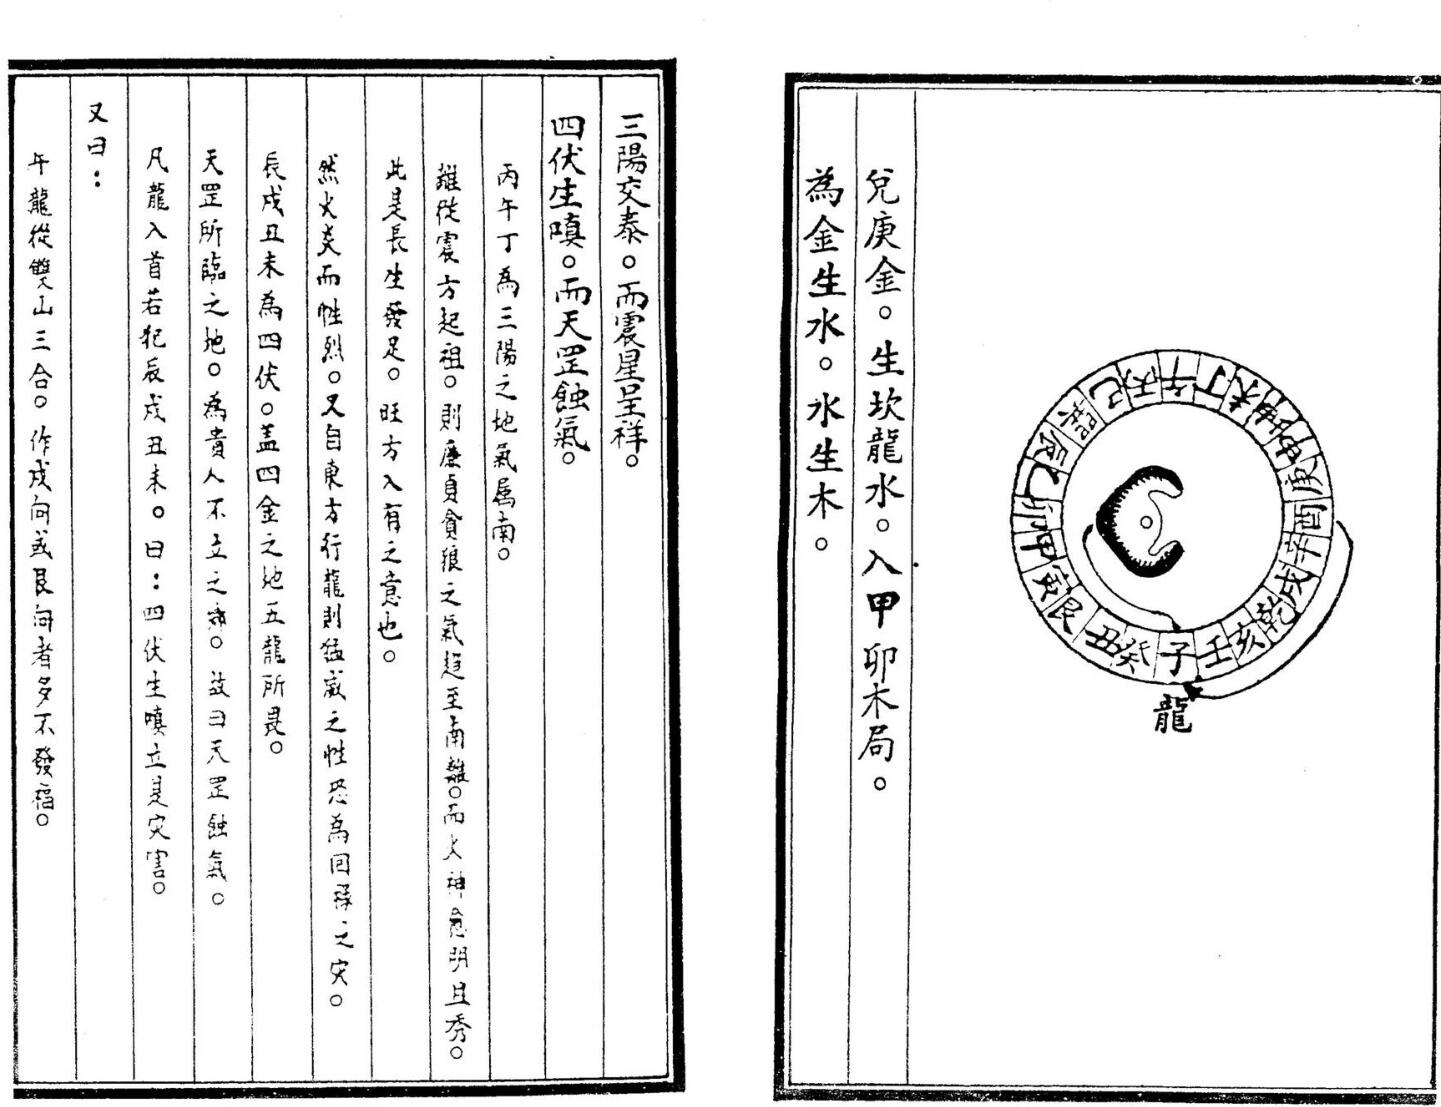 午丁未坤申庚酉辛戌乾亥壬子癸丑艮寅甲卯乙辰巽巳丙
龍
兌庚金。生坎龍水。入甲卯木局。
為金生水。水生木。
三陽交泰。而震星呈祥。
四伏生嗔。而天罡蝕氣。
丙午丁為三陽之地氣属南。
離從震方起祖。則廉貞貪狼之氣超至南離。而火神愈明且秀。
此是長生發足。旺方入有之意也。
然火炎而性烈。又自東方行龍則猛威之性恐為回祿之灾。
辰戌丑未為四伏。盖四金之地五龍所畏。
天罡所臨之地。為貴人不立之鄉。故曰天罡蝕氣。
凡龍入首若犯辰戌丑未。曰：四伏生嗔立是灾害。
又曰：
午龍從雙山三合。作戌向或艮向者多不發福。